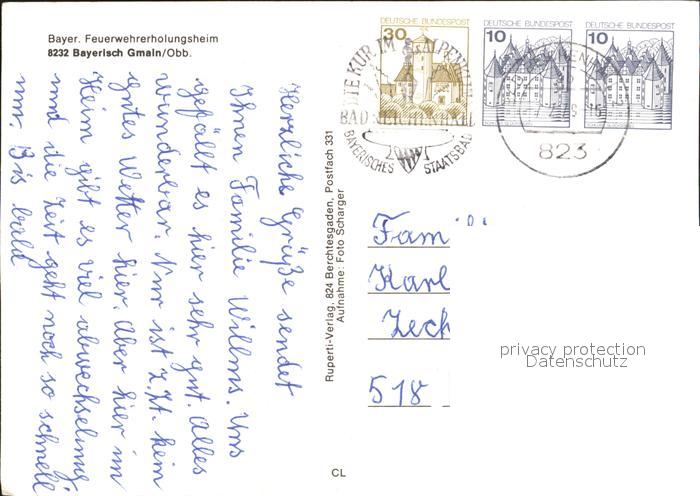 Bayer. Feuerwehrerholungsheim
8232 Bayerisch Gmain/Obb.
Herzliche Grüße sendet
Ihnen Familie Willms. Uns
gefällt es hier sehr gut. Alles
wunderbar. Nur ist z.Zt. kein
gutes Wetter hier. Aber hier im
Heim gibt es viel abwechslung
und die Zeit geht noch so schnell
um. Bis bald
Ruperti-Verlag, 824 Berchtesgaden, Postfach 331
Aufnahme: Foto Scharger
CL
30 DEUTSCHE BUNDESPOST
10 DEUTSCHE BUNDESPOST
10 DEUTSCHE BUNDESPOST
DIE KUR IM ALPENKLIMA
BAD REICHENHALL
BAYERISCHES STAATSBAD
823
Fam
Karl
Zech
518
privacy protection
Datenschutz